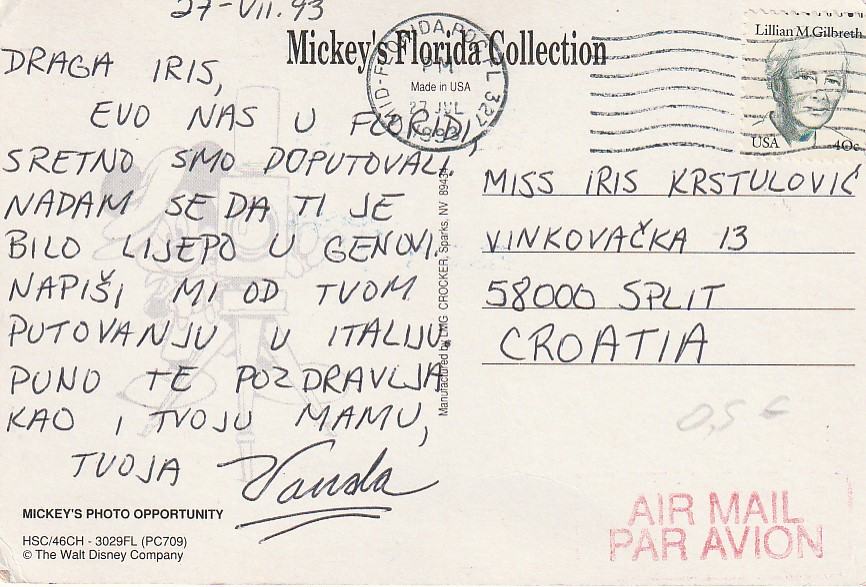 27-VII.93
Mickey's Florida Collection
Made in USA
DRAGA IRIS,
EVO NAS U FLORIDI,
SRETNO SMO DOPUTOVALI.
NADAM SE DA TI JE
BILO LIJEPO U GENOVI.
NAPIŠI MI OD TVOM
PUTOVANJU U ITALIJU.
PUNO TE POZDRAVLJA
KAO I TVOJU MAMU,
TVOJA Vanda
MICKEY'S PHOTO OPPORTUNITY
HSC/46CH - 3029FL (PC709)
© The Walt Disney Company
Manufactured by LMG CROCKER, Sparks, NV 89434
MID-FLORIDA, POSTAL 327
PM
27 JUL
1993
Lillian M.Gilbreth
USA 40c
MISS IRIS KRSTULOVIĆ
VINKOVAČKA 13
58000 SPLIT
CROATIA
0,5 €
AIR MAIL
PAR AVION